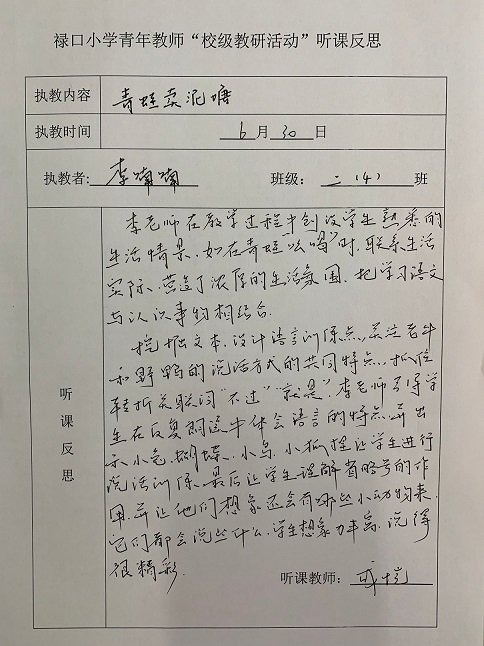 禄口小学青年教师“校级教研活动”听课反思
执教内容 青蛙卖泥塘
执教时间 6 月 30 日
执教者: 李喃喃 班级: 二(4) 班
听课反思
李老师在教学过程中创设学生熟悉的
生活情景,如在青蛙“吆喝”时,联系生活
实际、营造了浓厚的生活氛围、把学习语文
与认识事物相结合.
挖掘文本、设计语言训练点,关注老牛
和野鸭的说话方式的共同特点,抓住
转折关联词“不过”“就是”,李老师引导学
生在反复朗读中体会语言的特点,并出
示小兔、蝴蝶、小鸟、小狐狸让学生进行
说话训练,最后让学生理解省略号的作
用,并让他们想象还会有哪些小动物来,
它们都会说些什么,学生想象力丰富,说得
很精彩.
听课教师: